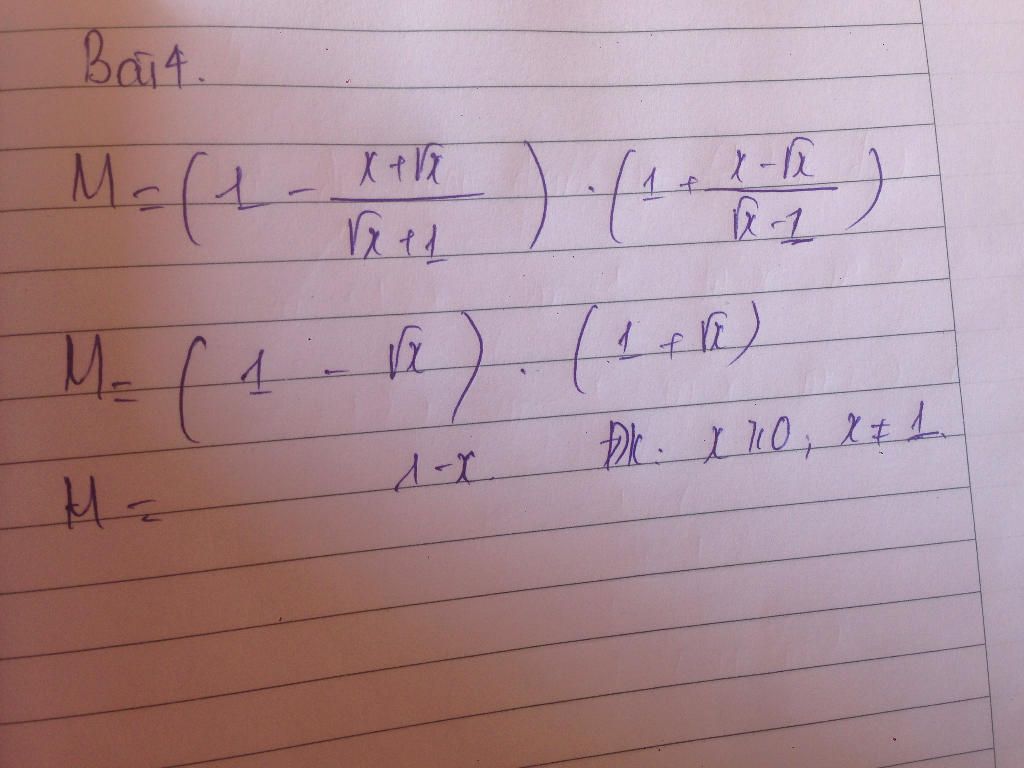 Bài 4.
M = ( 1 - \frac{x+√x}{√x+1} ) . ( 1 + \frac{x-√x}{√x-1} )
M = ( 1 - √x ) . ( 1 + √x )
M = 1-x. ĐK. x ≥ 0; x ≠ 1.